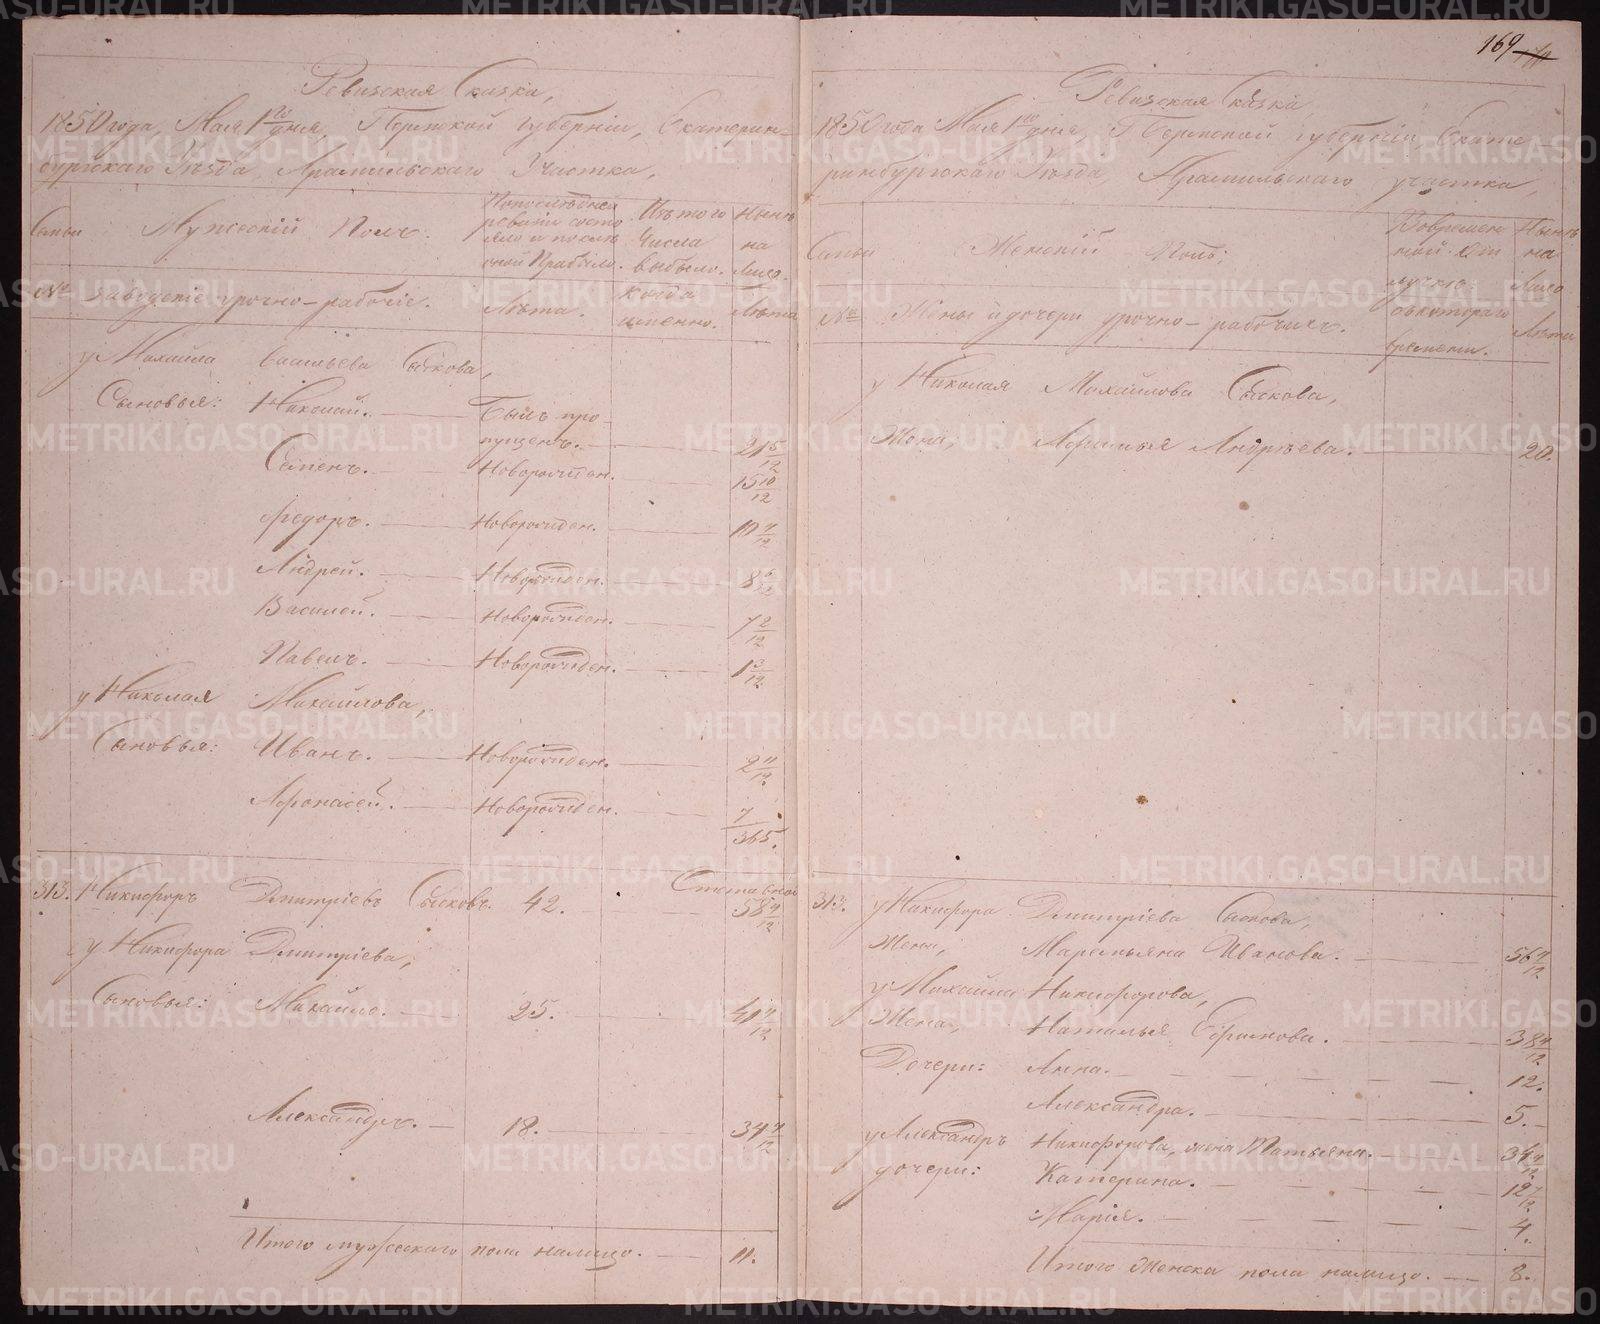 169
Ревизская Сказка,
1850 года, Мая 1го дня, Пермской губерніи, Екатерин-
бургскаго Уѣзда, Арамильскаго Участка,
Семьи
Мужескій Полъ.
По последней
ревизіи состо
яло и послѣ
оной Прибыло.
Изъ того
Числа
выбыло.
Нынѣ
на
лицо.
№
заводскіе урочно-рабочіе.
Лѣта.
Когда
именно.
Лѣта
у Михайла Васильева Сыскова,
Сыновья: Николай. Былъ про-
пущенъ. 21 5/12
Семенъ. Новорожден. 15 10/12
Федоръ. Новорожден. 10 4/12
Андрей. Новорожден. 8
Василей. Новорожден. 7 2/12
Павелъ. Новорожден. 1 3/12
у Николая Михайлова,
Сыновья: Иванъ. Новорожден. 2 11/12
Афонасей. Новорожден. 7/365.
313. Никифоръ Дмитріевъ Сысковъ. 42. 58 4/12
у Никифора Дмитріева,
Сыновья: Михайло. 25. 41 4/12
Александръ. 18. 34 4/12
Итого мужескаго пола налицо. 11.
Ревизская Сказка
1850 года Мая 1го дня, Пермской губерніи, Екате-
ринбургскаго Уѣзда, Арамильскаго участка,
Семьи
Женскій Полъ.
Во времен
ной от
лучкѣ.
Нынѣ
на
лицо
№
Жены и дочери урочно-рабочихъ.
съ котораго
времени.
Лѣта
у Николая Михайлова Сыскова,
Жена, Афимья Андреева. 20.
313. у Никифора Дмитріева Сыскова,
Жена, Маремьяна Иванова. 56 4/12
у Михайла Никифорова,
Жена, Наталья Ефимова. 38 4/12
Дочери: Анна. 12.
Александра. 5.
у Александръ Никифорова, жена Татьяна. 34 4/12
дочери: Катерина. 12
Марія. 4.
Итого Женска пола налицо. 8.
METRIKI.GASO-URAL.RU